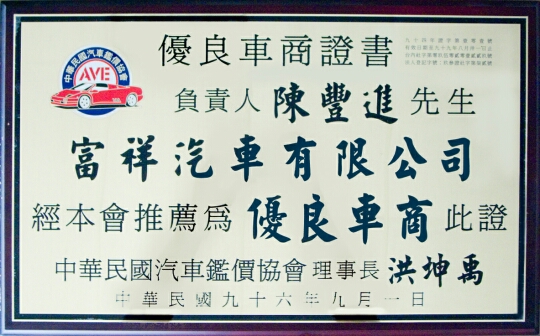 優良車商證書
中華民國汽車鑑價協會
AVE
負責人 陳豐進 先生
富祥汽車有限公司
經本會推薦為 優良車商 此證
中華民國汽車鑑價協會 理事長 洪坤禹
中華民國九十六年九月一日